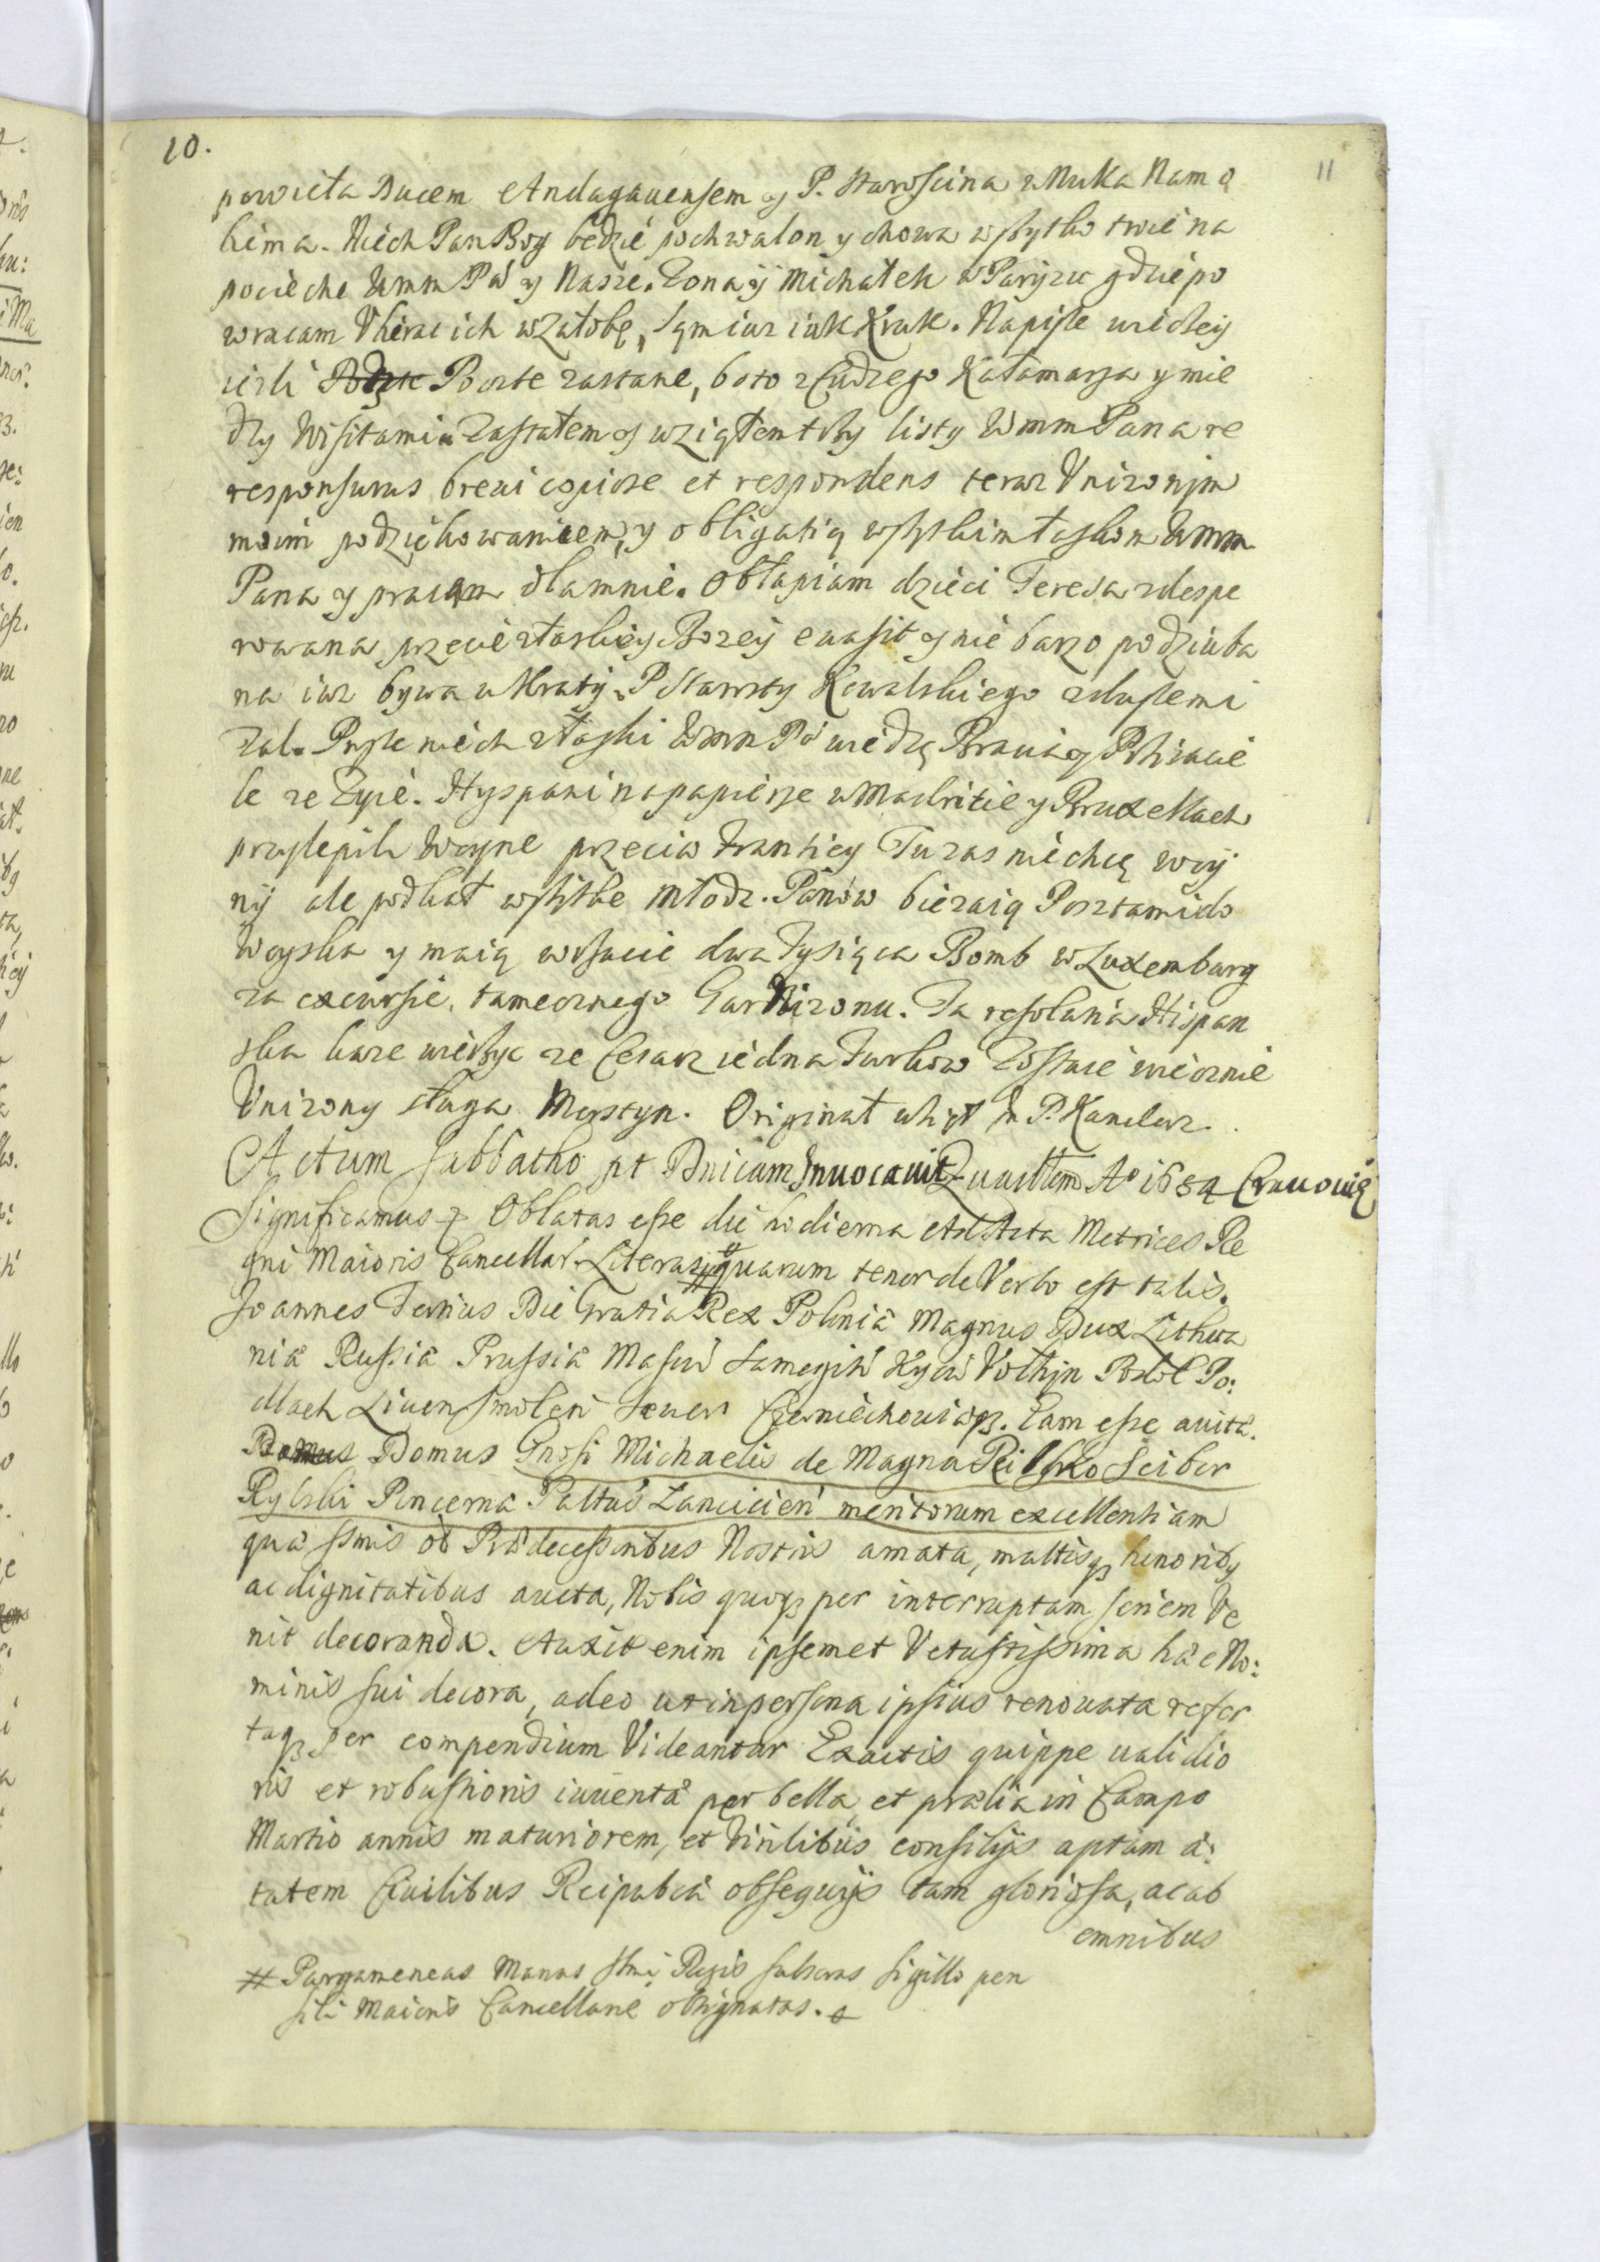 10.
11
powiela Ducem Andagauensem y P. Starościna wnuka Nam o
kima. Niech Pan Bog będzie pochwalon y chowa wszytko twoie na
pocieche Wmm Pa y Nasze. Zona y Michałek w Paryzu gdzie po
wracam Vbierac ich w załobę, sąm iuz iak Kruk. Napisze wiecey
iezli Poczte zastane, bo to z Cudzego Kałamarza y mie
dzy Wisitami Zastałem y wziąłem trzy listy Wmm Pana re
responsurus breui copiose et respondens teraz Vnizonym
moim podziękowaniem, y obligatią wszytkim łaskom Wmm
Pana y pracąm dla mnie. Obłapiam dzieci Teresa zdespe
rowana przecie z łaskiey Bozey euasit y nie barzo podziuba
na iuz bywa u Kraty. P Starosty Kowalskiego z duszemi
zal. Pisze niech z łaski Wmm Pa wiedzą Bracia y Przyiacie
le ze Zyie. Hyspani na papierze w Madritie y Bruxellach
przylepili Woyne przeciw Frantiey Tu zas nie chcą woy
ny ale podkał wszytkie młodz. Panow biezaią Posztami do
Woyska y maią wrzucic dwa Tysiąca Bomb w Luxemburg
za excursie tamecznego Garnizonu. Ta resolutia Hispan
ska kaze wierzyc ze Cesarz iedna Turkow Zostaie wiecznie
Vnizony sługa Morstyn. Originał u P. Kanclerz.
Actum Sabbatho pt Dnicam Inuocauit Ao 1684 Cracouiæ
Significamus Oblatas esse die hodierna Ad Acta Metrices Re
gni Maioris Cancellar. Literas # quarum tenor de Verbo est talis.
Joannes Tertius Dei Gratia Rex Poloniæ Magnus Dux Lithua
niæ Russiæ Prussiæ Masou Samogit Kyou Volhyn Podol Po:
dlach Liuon Smolen Seuer Czerniechouiæq. Eam esse auitæ
Domus Domus Gnosi Michaelis de Magna Scibor
Rylski Pincernæ Pałtus Lancicien meritorum excellentiam
quæ ssmis ob Prædecessoribus Nostris amata, multisq honoribq
ac dignitatibus aucta, Nobis quoq per interruptam seriem Ve
nit decoranda. Auxit enim ipsemet Vetustissima hæc No:
minis sui decora, adeo ut in persona ipsius renouata refer
taq per compendium Videantur Exactis quippe ualidio
ris et robustioris iuuentæ per bella et prælia in Campo
Martio annis maturiorem, et Virilibus consilijs aptam æ:
tatem Ciuilibus Reipubcæ obsequijs tam gloriosa, ac ab
omnibus
# Pargameneas Manu Smi Regis subscras Sigillo pen
sili Maioris Cancellariæ obsignatas.